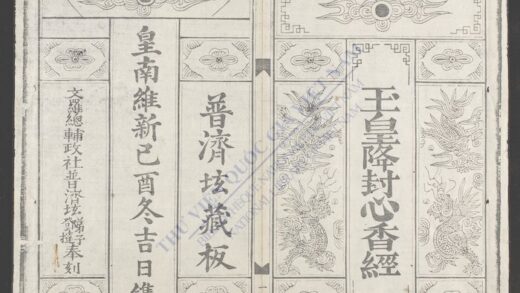 王皇降封心香經
普濟坛藏板
皇南維新己酉冬吉日
文羅總輔政社普濟坛弟子奉刻
一
THƯ VIỆN QUỐC GIA VIỆT NAM
NATIONAL LIBRARY OF VIETNAM